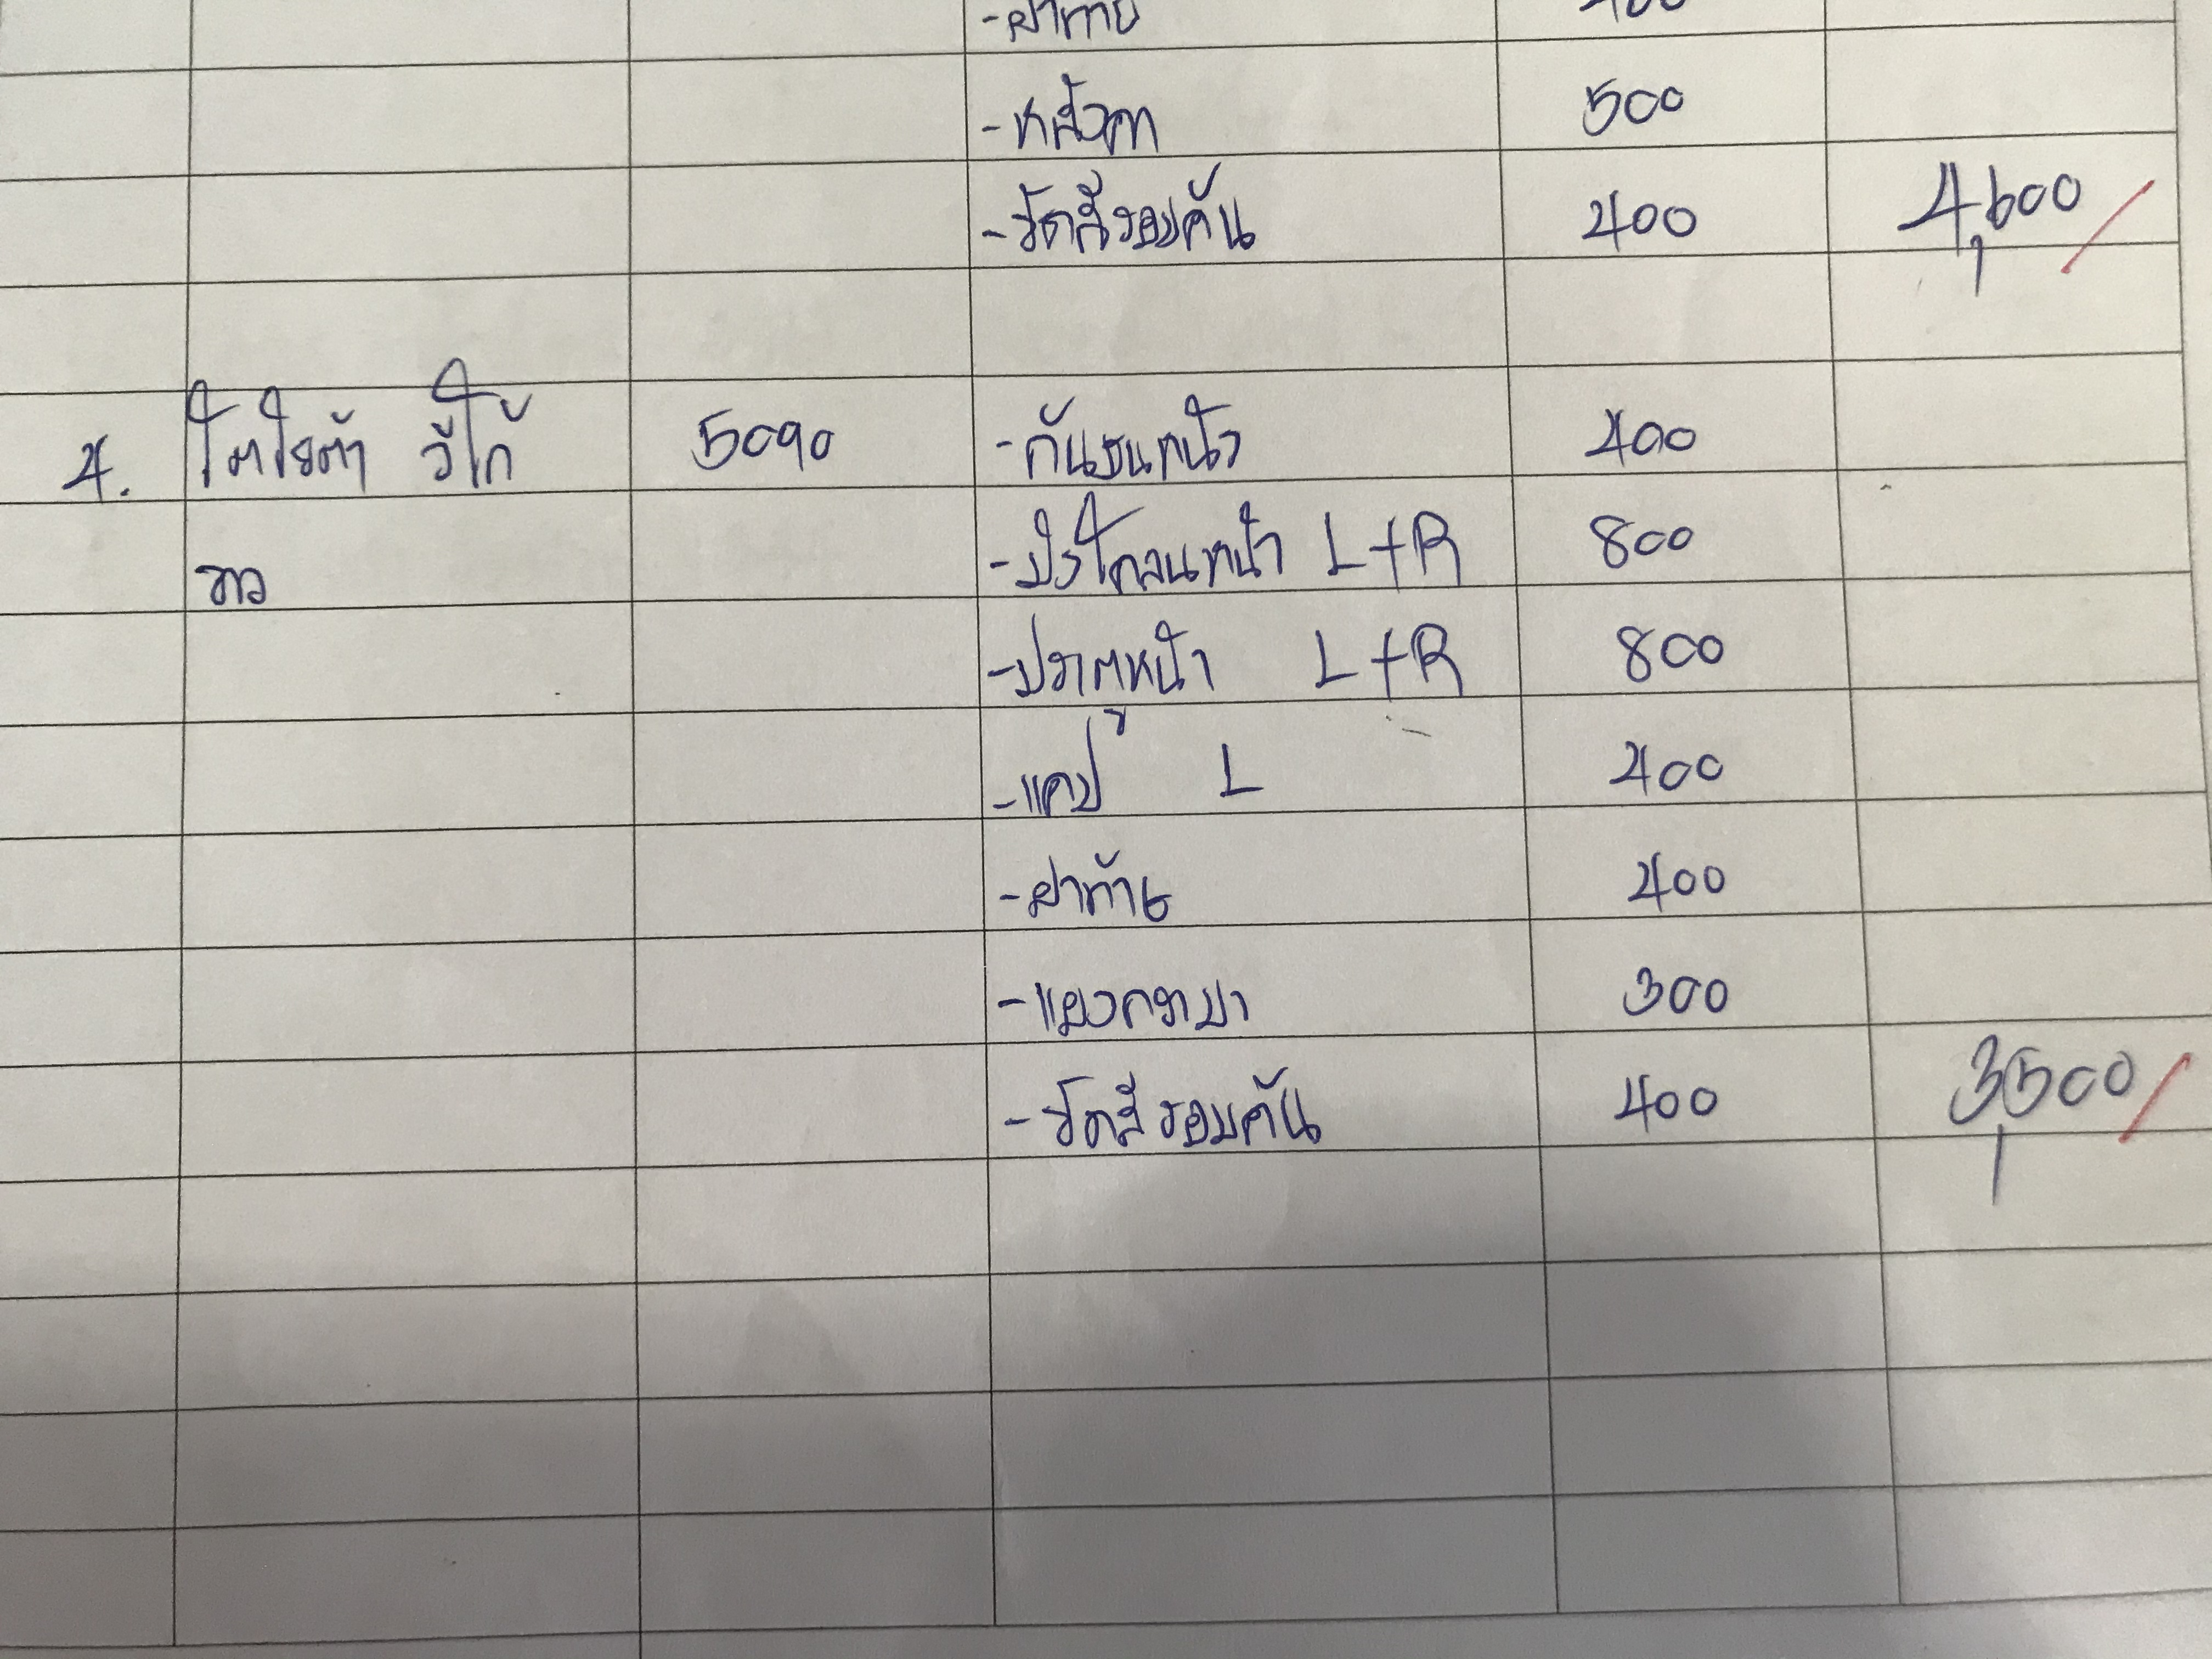 -ฝาท้าย 400
-หลังคา 500
-ขัดสีรอบคัน 400 4,600
4. โตโยต้า วีโก้ 5090 -กันชนหน้า 400
ขาว -บังโคลนหน้า L+R 800
-ประตูหน้า L+R 800
-แคป L 400
-ฝาท้าย 400
-แผงคอม้า 300
-ขัดสีรอบคัน 400 3,500